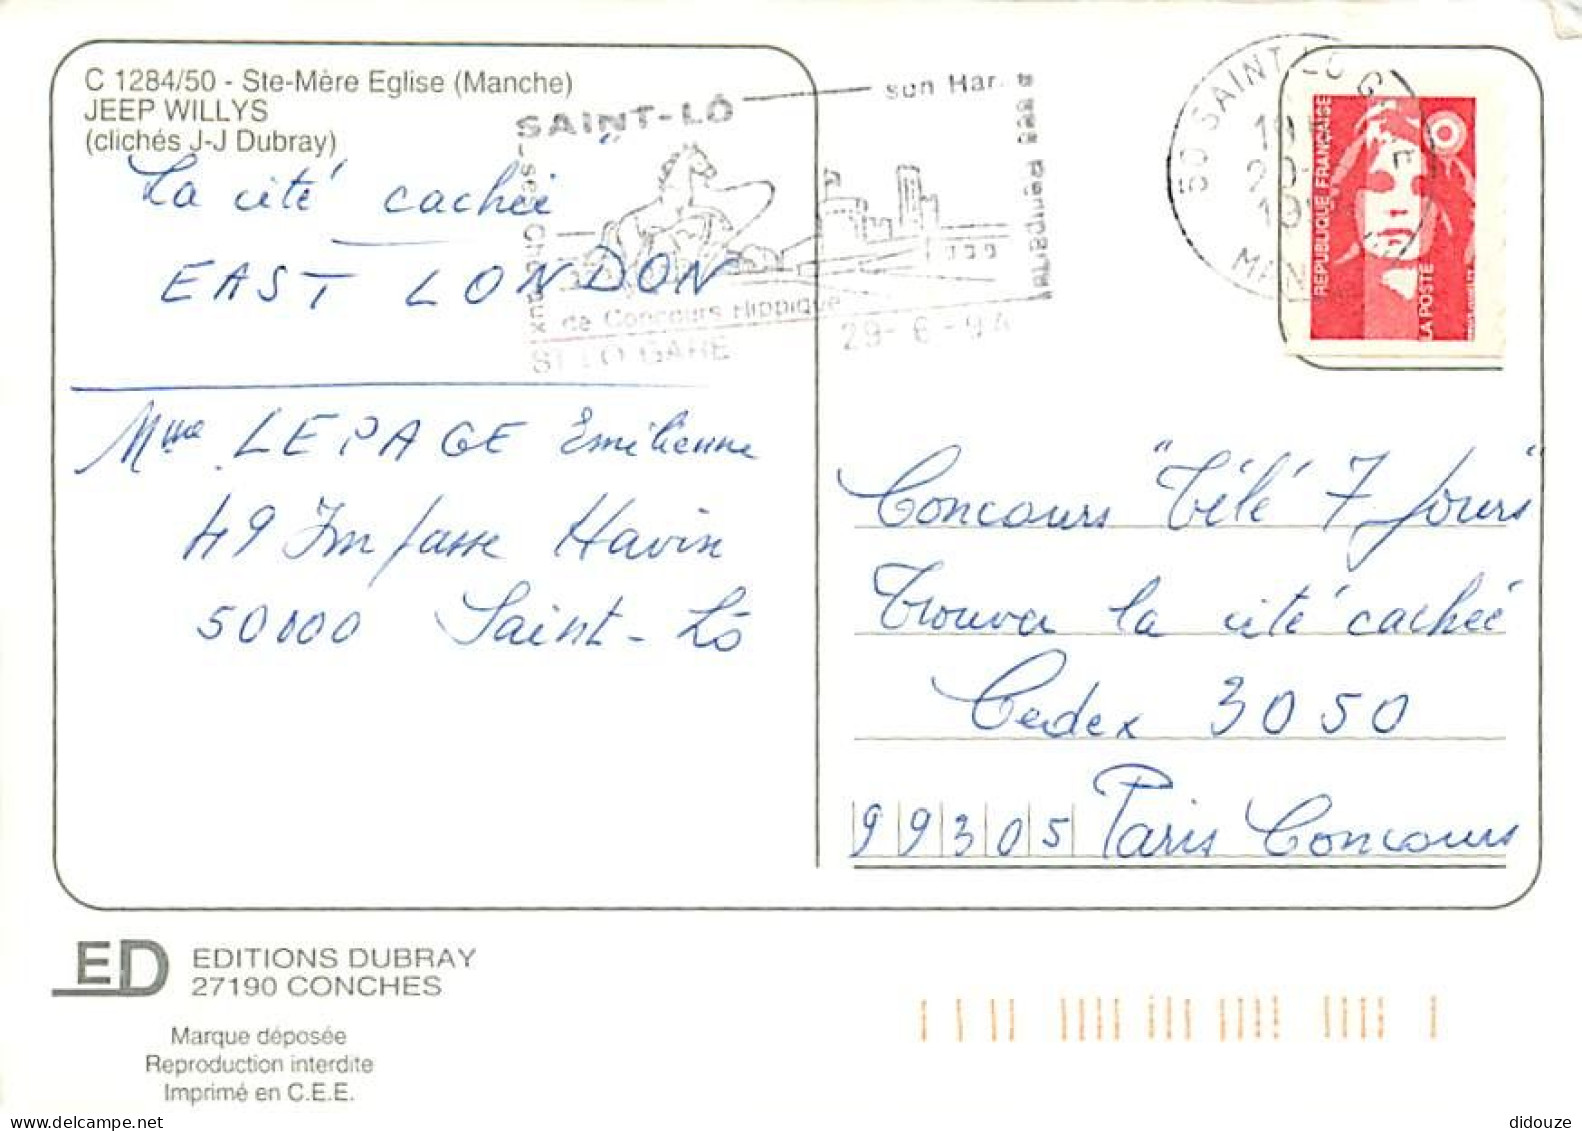 C 1284/50 - Ste-Mère Eglise (Manche)
JEEP WILLYS
(clichés J-J Dubray)
La cité cachée
EAST LONDON
Mme LEPAGE Emilienne
49 Impasse Havin
50000 Saint-Lô
SAINT-LÔ
son Har
de Concours Hippique
ST LO GARE
29-6-94
50 SAINT LO
REPUBLIQUE FRANÇAISE
LA POSTE
Concours "Télé 7 Jours"
Trouver la cité cachée
Cedex 3050
99305 Paris Concours
ED
EDITIONS DUBRAY
27190 CONCHES
Marque déposée
Reproduction interdite
Imprimé en C.E.E.
didouze